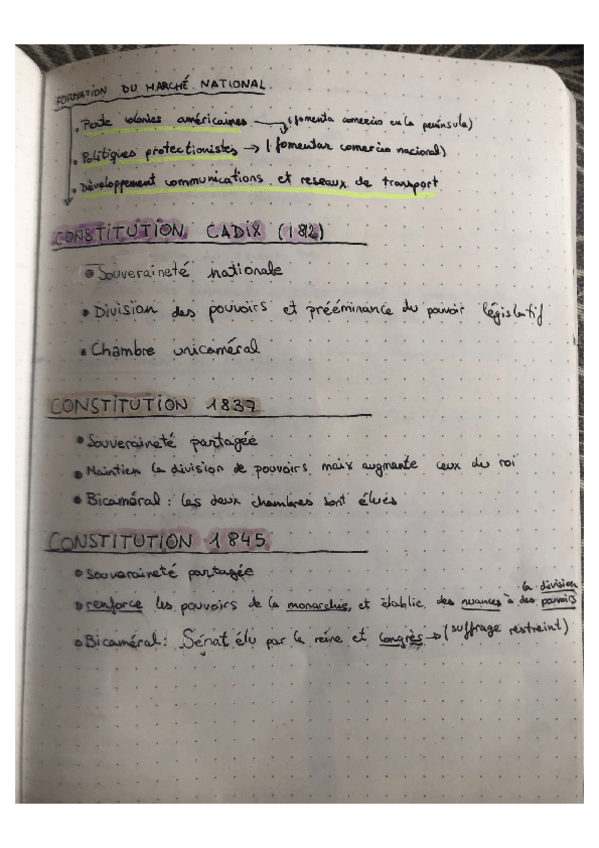 FORMATION DU MARCHÉ NATIONAL
• Perte colonies américaines → (fomenta comercio en la península)
• Politiques protectionistes → (fomentar comercio nacional)
• Développement communications et reseaux de transport
CONSTITUTION CADIX (1812)
• Souveraineté nationale
• Division des pouvoirs et prééminance du pouvoir législatif
• Chambre unicaméral
CONSTITUTION 1837
• Souveraineté partagée
• Maintien la division de pouvoirs, maix augmente ceux du roi
• Bicaméral: les deux chambres sont élues
CONSTITUTION 1845
• Souveraineté partagée
la division
• renforce les pouvoirs de la monarchie, et établie des nuances à des pouvoirs
• Bicaméral: Sénat élu par la reine et congrès → (suffrage restreint)